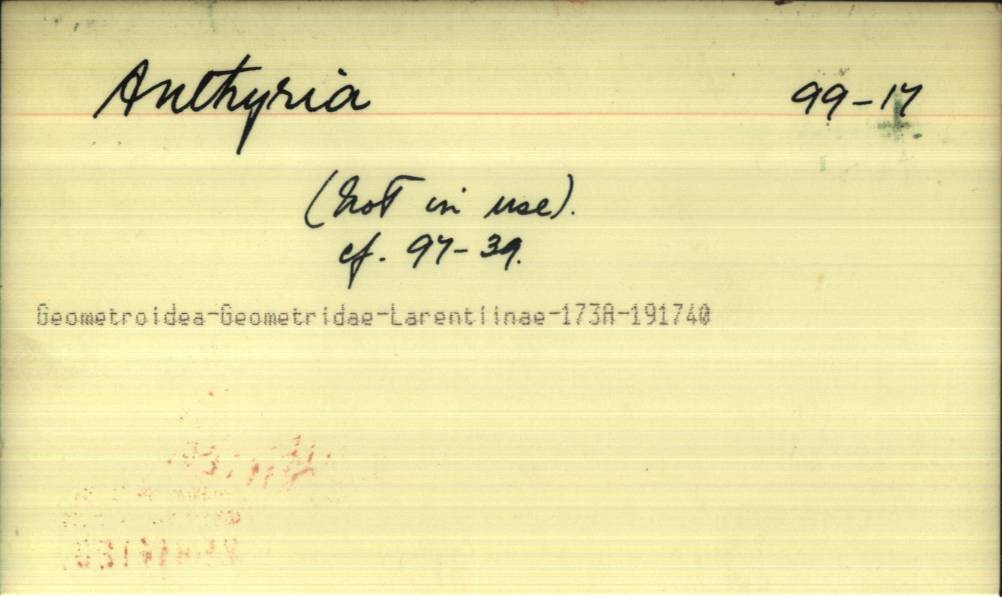 Anthyria 99-17
(Not in use).
cf. 97-39.
Geometroidea-Geometridae-Larentiinae-173A-191740